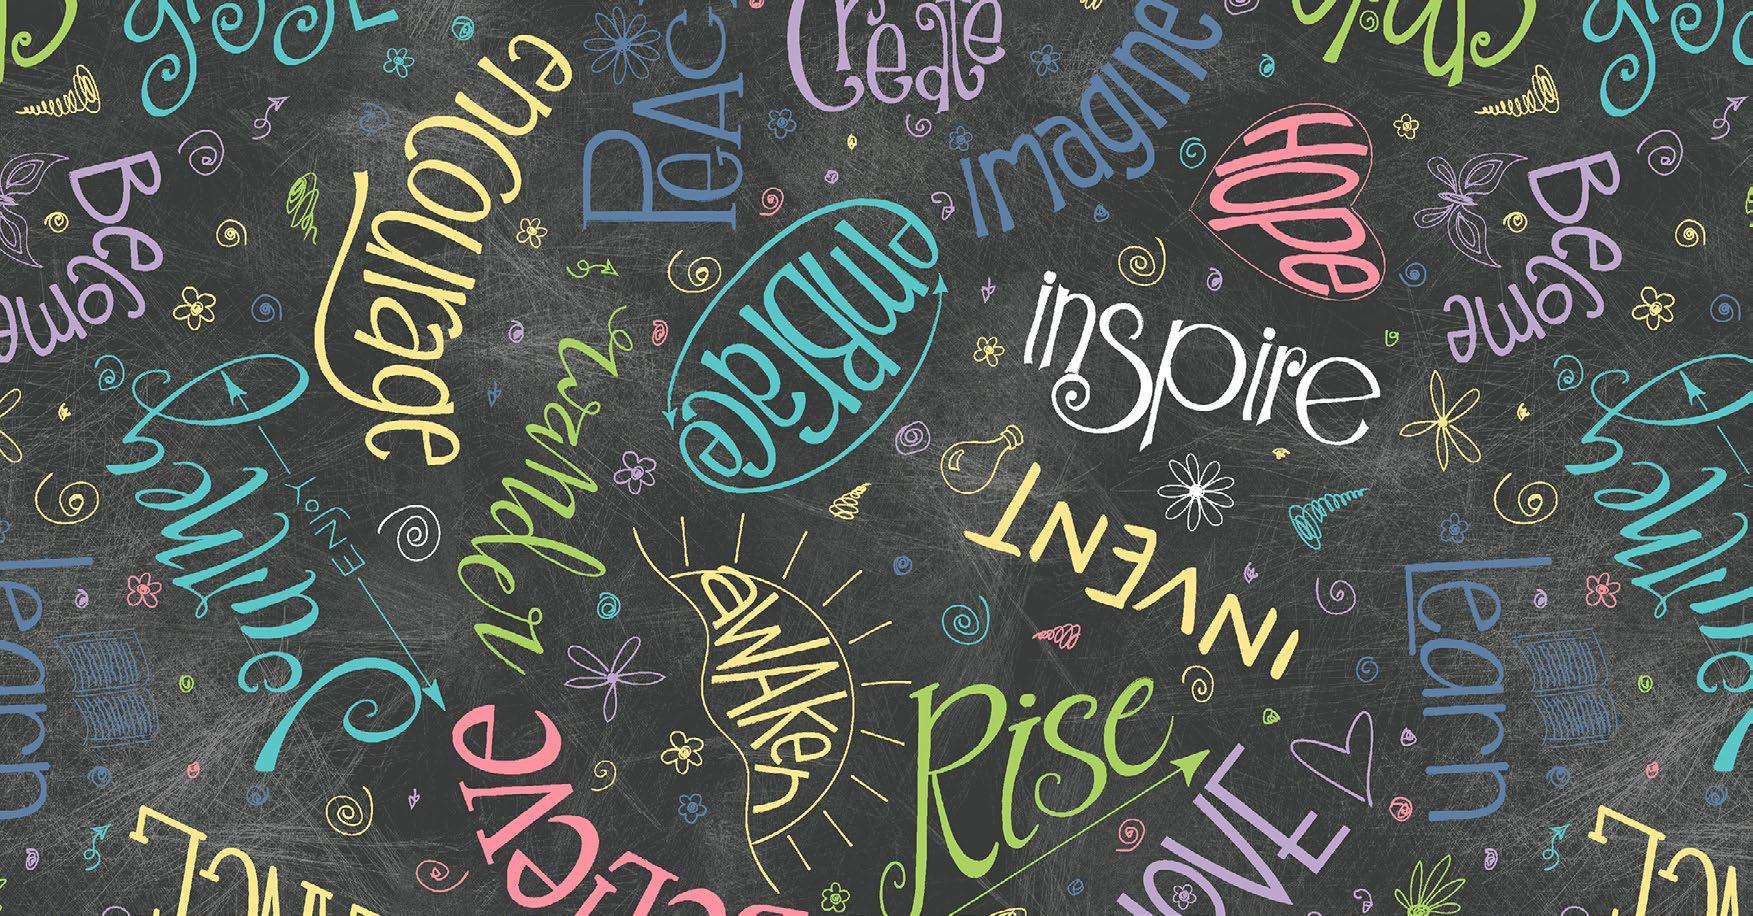 Create
imagine
encourage
PeAC
Hope
Become
Become
embrace
inspire
wander
ENJoY
INVENT
learn
learn
aWAKen
Rise
love